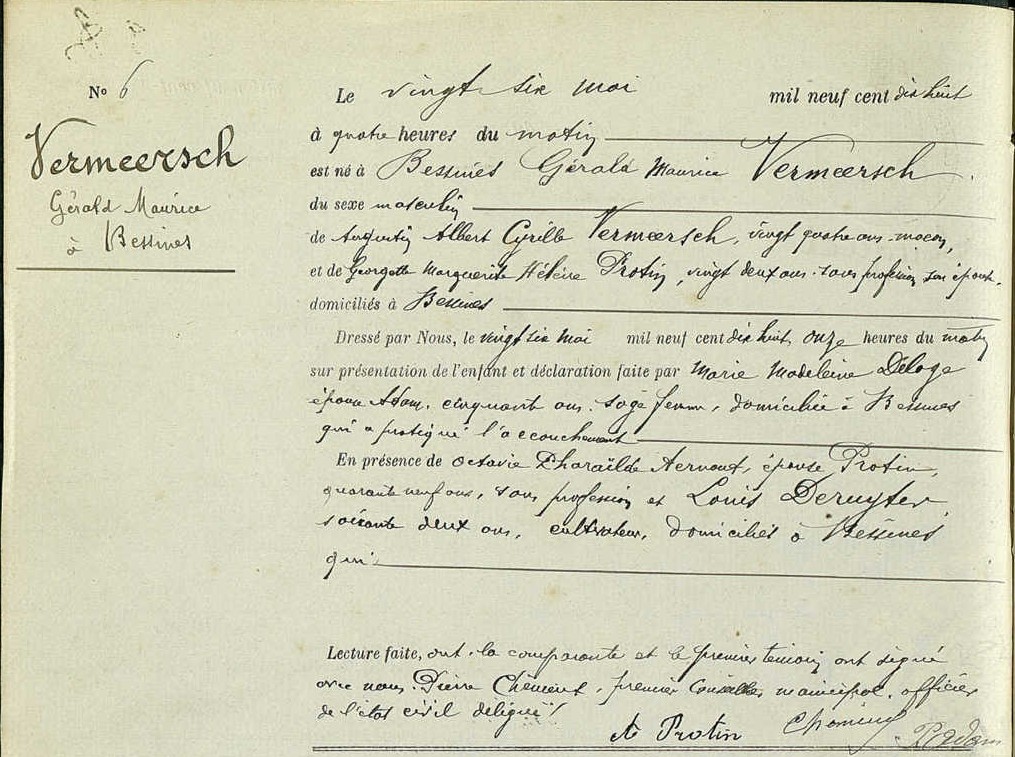 N° 6
Vermeersch
Gérald Maurice
à
Bessines
Le vingt six mai mil neuf cent dix huit
à quatre heures du matin
est né à Bessines Gérald Maurice Vermeersch
du sexe masculin
de Augustin Albert Cyrille Vermeersch, vingt quatre ans, maçon,
et de Georgette Marguerite Hélène Protin, vingt deux ans, sans profession son épouse,
domiciliés à Bessines
Dressé par Nous, le vingt six mai mil neuf cent dix huit, onze heures du matin
sur présentation de l'enfant et déclaration faite par Marie Madeleine Déloge
épouse Adam, cinquante ans, sage femme, domiciliée à Bessines
qui a pratiqué l'accouchement
En présence de Octavie Pharaïlde Aernout, épouse Protin,
quarante neuf ans, sans profession et Louis Deruyter,
soixante deux ans, cultivateur, domiciliés à Bessines
qui
Lecture faite, ont la comparante et le premier témoin ont signé
avec nous Pierre, premier Conseiller municipal, officier
de l'état civil délégué
Protin